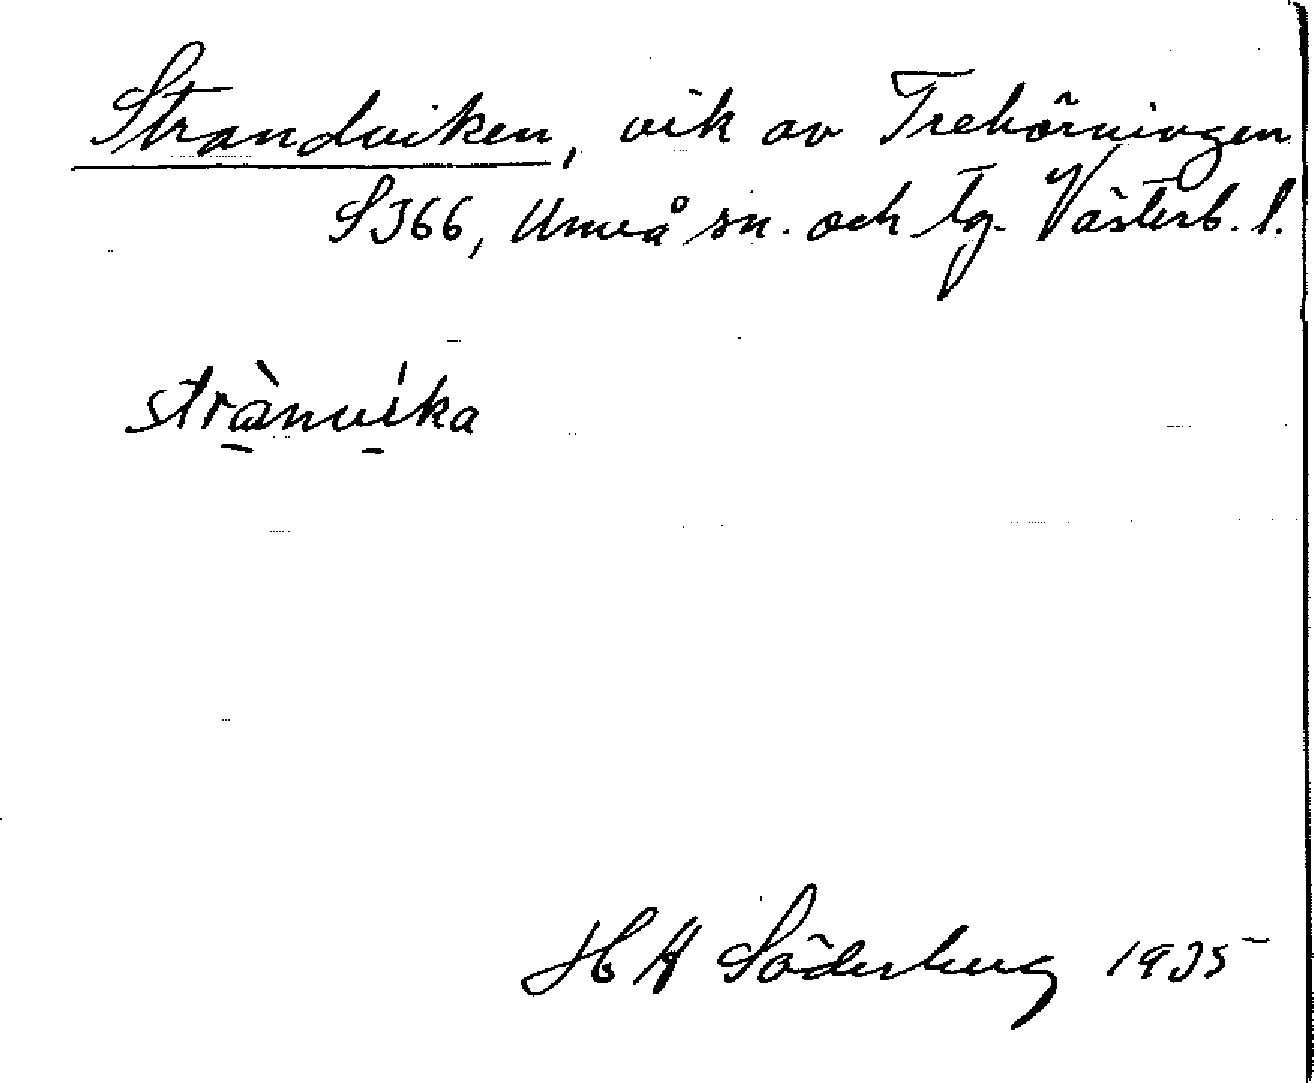 Strandviken, vik av Trehörningen
SJ66, Umeå sn. och tg. Västerb. l.
strànvíka
H A Söderberg 1935